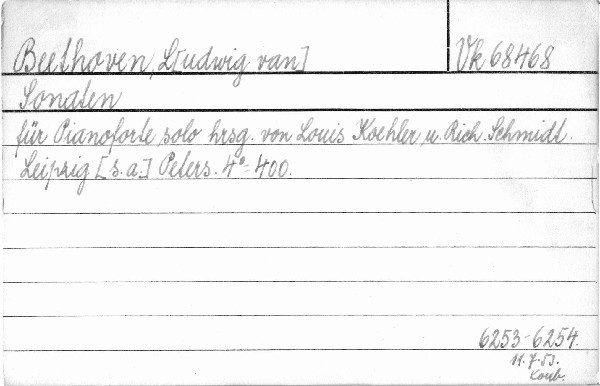 Beethoven, L[udwig van]
Vk 68468
Sonaten
für Pianoforte solo hrsg. von Louis Koehler u. Rich. Schmidt.
Leipzig [s.a.] Peters. 4° 400.
6253-6254.
11.7.53.